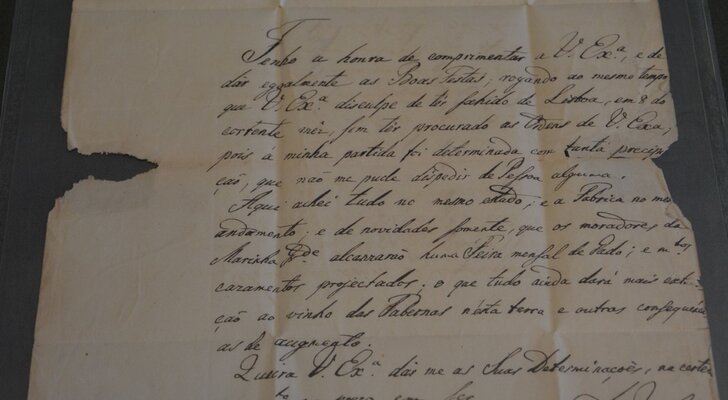 Tenho a honra de comprimentar a V. Exª, e de
dar egoalmente as Boas Festas; rogando ao mesmo tempo
que V. Exª. disculpe de têr sahido de Lisboa, em 8 do
corrente mêz, sem têr procurado as Ordens de V. Exa;
pois a minha partida foi determinada com tanta precipi
ção, que não me pude dispedir de Pessoa alguma.
Aqui achei tudo no mesmo estado; e a Fabrica no mes
andamento; e de novidades somente, que os moradores da
Marinha Gde alcansarão huma Feira mensal de Gado; e mtos
cazamentos projectados; o que tudo ainda dará mais ext
ção ao vinho das Tabernas nésta terra e outras consequênci
as de augmento.
Queira V. Exª. dar me as Suas Determinações, na certe